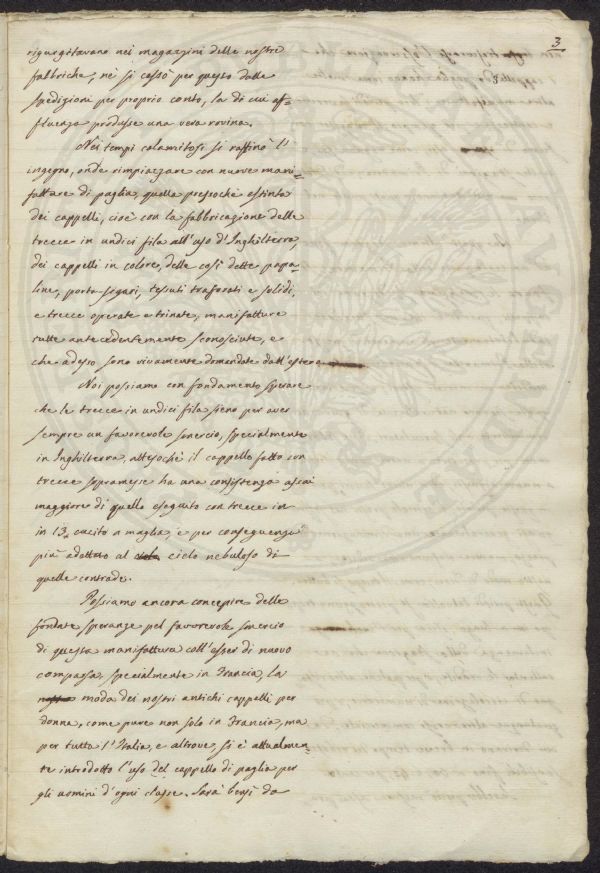 3
3
rigurgitavano nei magazzini delle nostre
fabbriche, nè si cessò per questo dalle
spedizioni per proprio conto, la di cui af-
fluenza produsse una vera rovina.
Nei tempi calamitosi si raffinò l'
ingegno, onde rimpiazzare con nuove mani-
fatture di paglia, quella pressochè estinta
dei cappelli, cioè con la fabbricazione delle
trecce in undici fila all'uso d'Inghilterra,
dei cappelli in colore, delle così dette papa-
line, porta-segari, tessuti traforati e solidi,
e trecce operate e trinate, manifatture
tutte antecedentemente sconosciute, e
che adesso sono vivamente domandate dall'estero
Noi possiamo con fondamento sperare
che le trecce in undici fila sieno per aver
sempre un favorevole smercio, specialmente
in Inghilterra, attesochè il cappello fatto con
trecce sopramesse ha una consistenza assai
maggiore di quello eseguito con trecce in
in 13, cucito a maglia, e per conseguenza
più adottato al cielo nebuloso di
quelle contrade.
Possiamo ancora concepire delle
fondate speranze pel favorevole smercio
di questa manifattura coll'esser di nuovo
comparsa, specialmente in Francia, la
moda dei nostri antichi cappelli per
donna, come pure non solo in Francia, ma
per tutta l'Italia, e altrove, si è attualmen-
te introdotto l'uso del cappello di paglia per
gli uomini d'ogni classe. Sarà bensì da